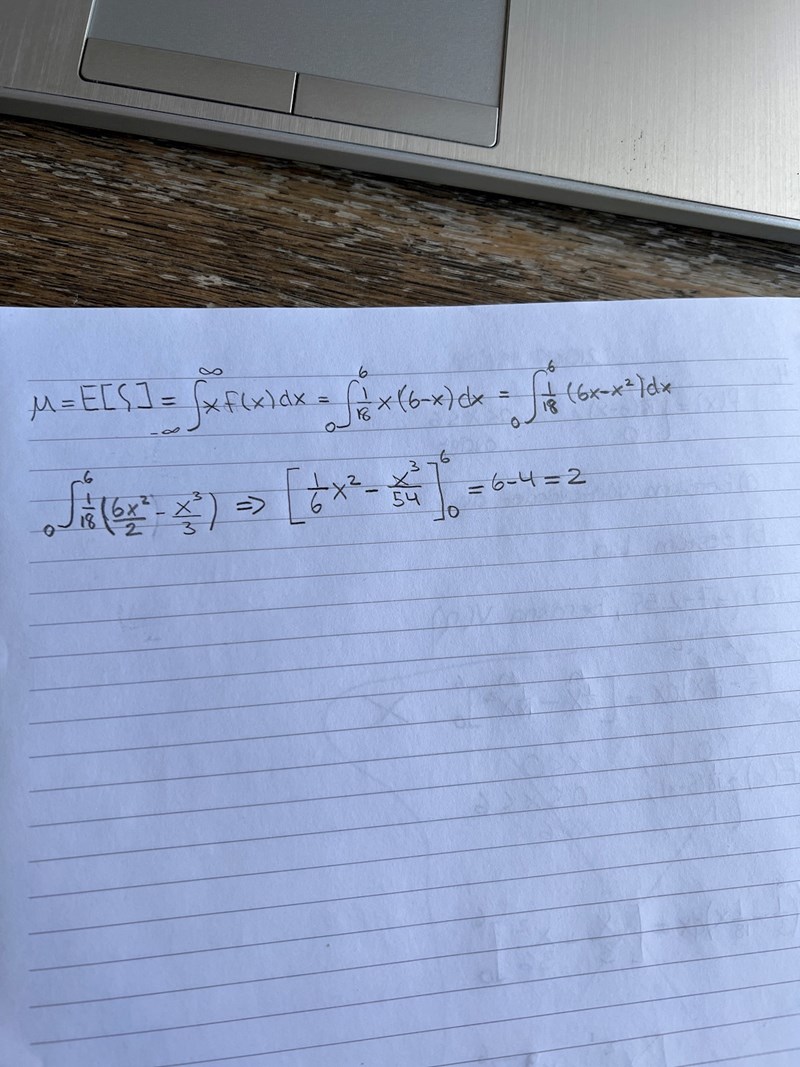 μ = E[ξ] = ∫_{-∞}^{∞} x f(x) dx = ∫_0^6 1/18 x(6-x) dx = ∫_0^6 1/18 (6x-x²) dx
∫_0^6 1/18 (6x²/2 - x³/3) ⇒ [1/6 x² - x³/54]_0^6 = 6-4 = 2